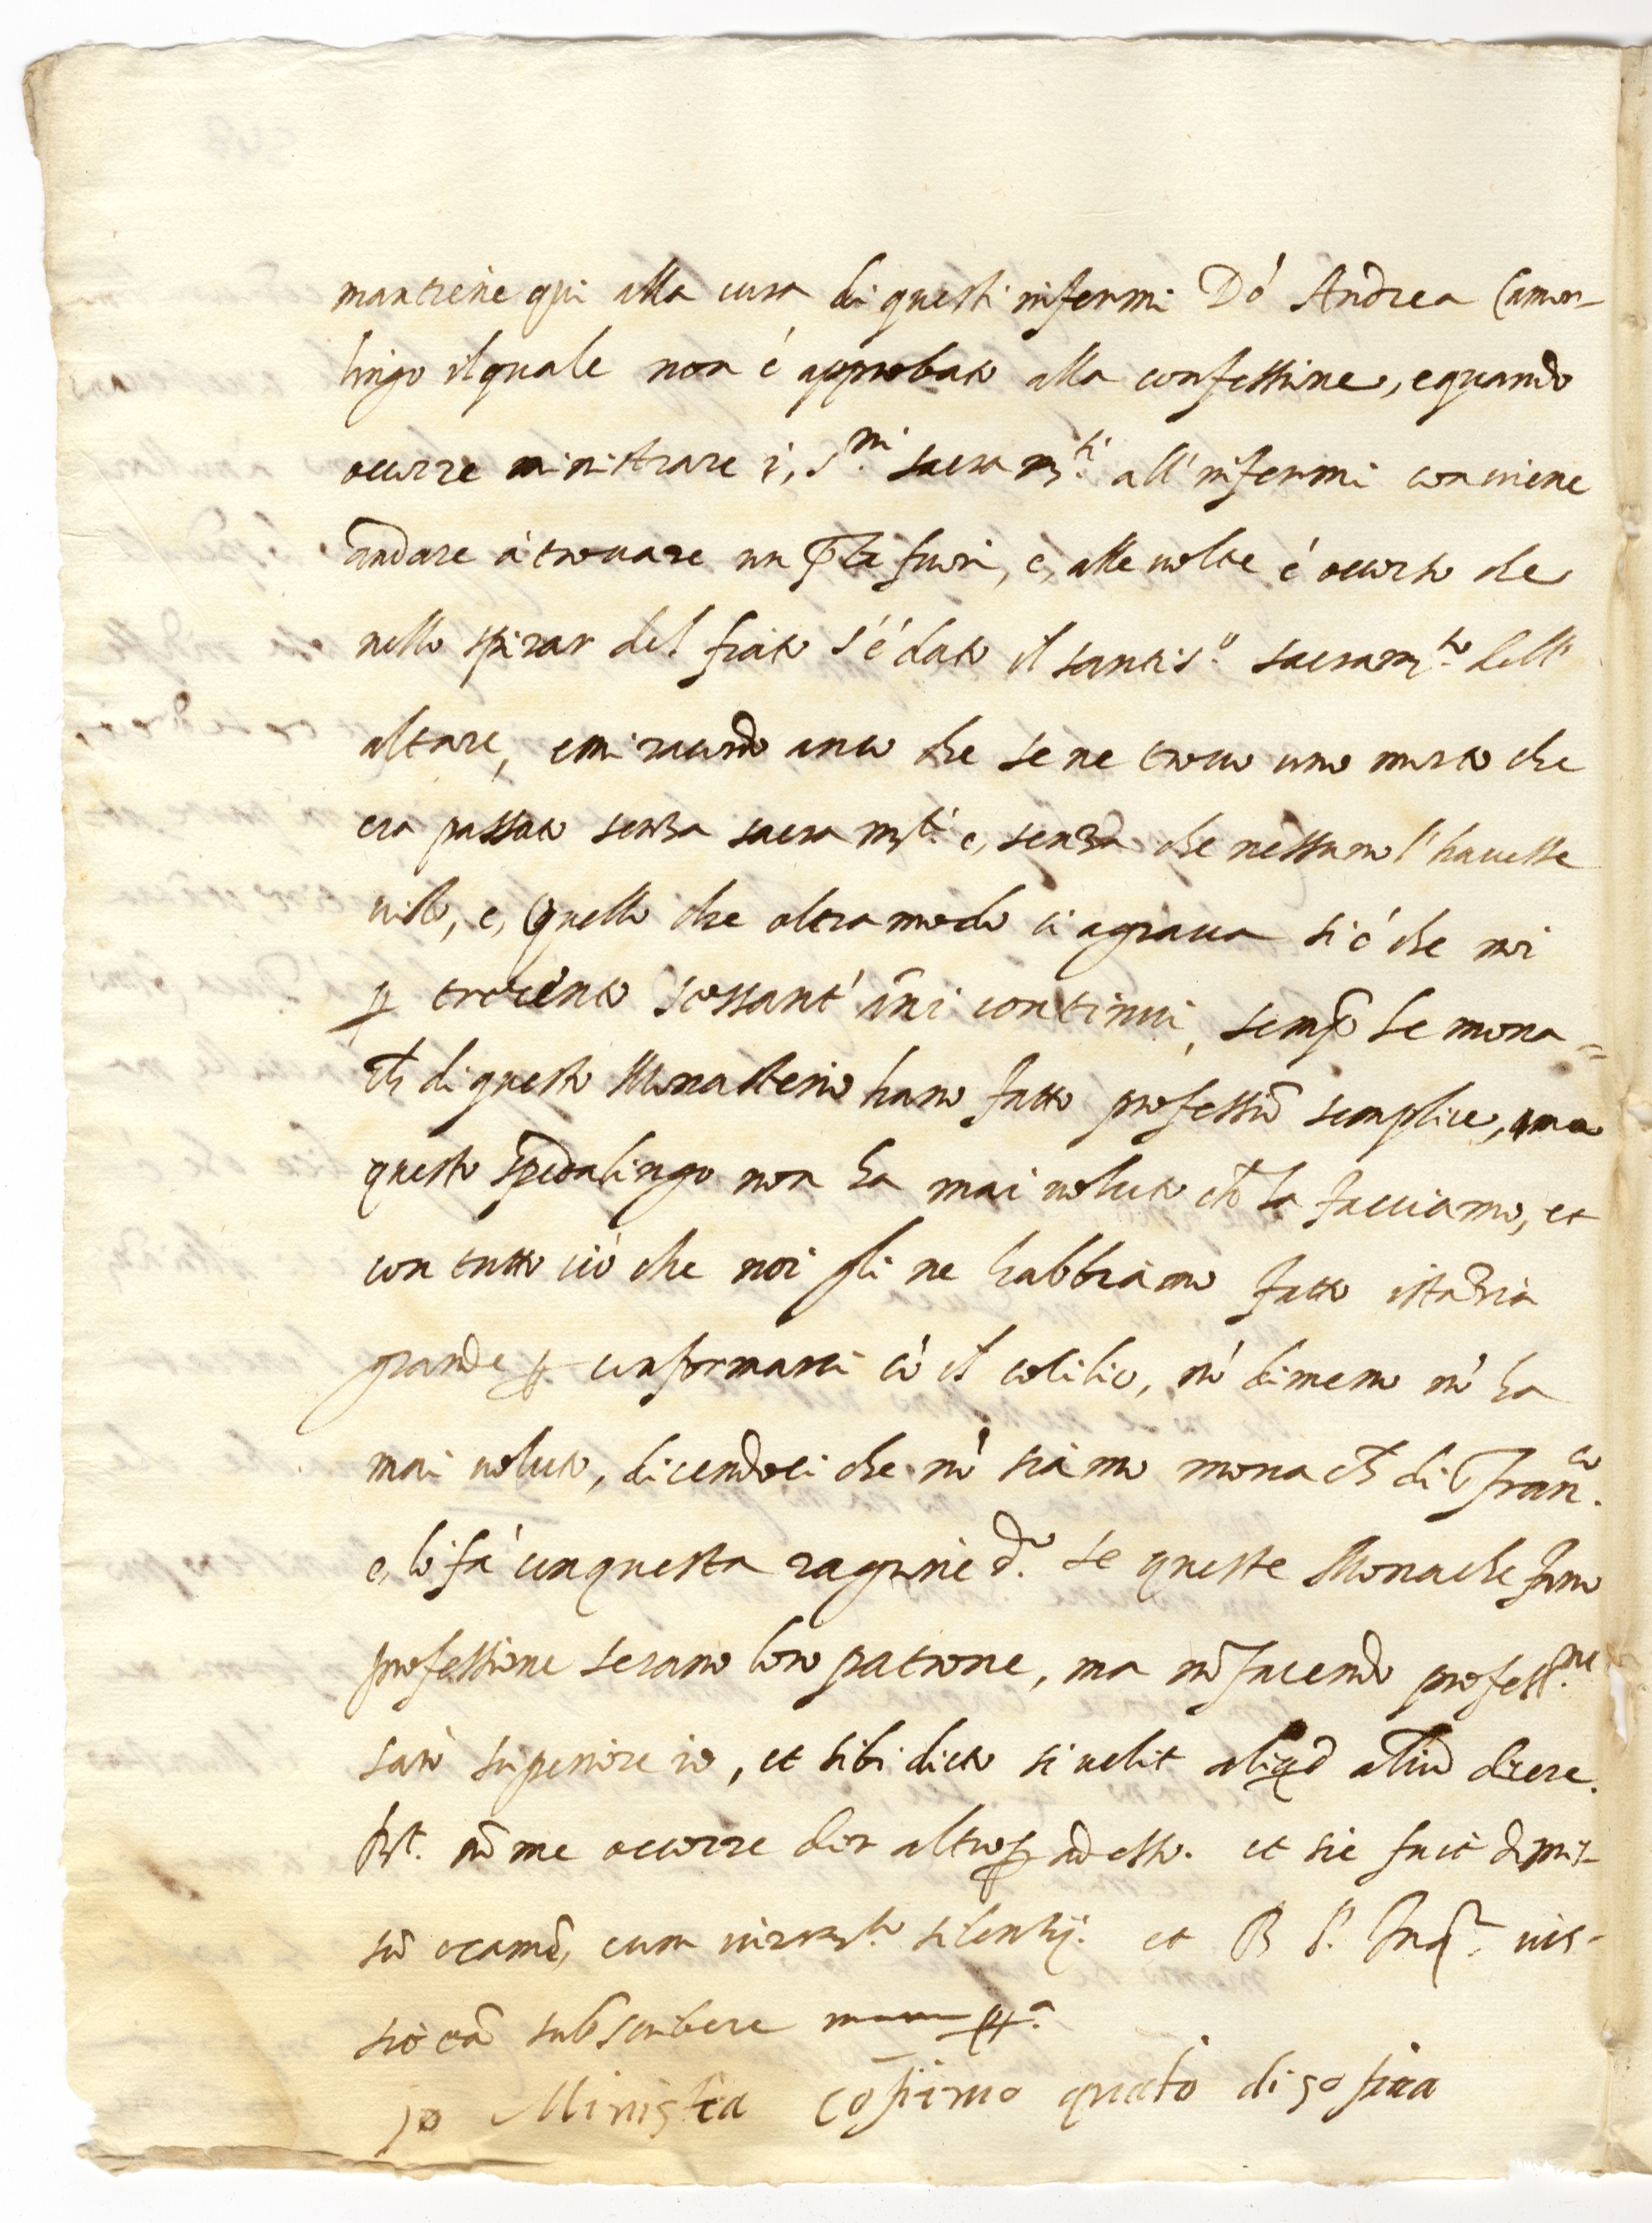 mantiene qui alla cura di questi infermi Dō Andrea Camar-
lingo ilquale non é approbato alla confessione, e quando
occorre ministrare i, S.mi sacram.ti all'infermi conviene
andare á trovare un p̄te fuori, e, alle volte é occorso che
nello spirar del fiato s'é dato il santis.o sacram.to dell'
altare, e mi ricordo anco che se ne trovo uno morto che
era passato senza sacram.ti e, senza che nessuno l'havesse
visto, e, quello che oltra modo ci agrava si é che noi
p trecento sessant'āni continui, semp̄ le mona=
ch̄ di questo Monasterio hano fatto professiō semplice, ma
questo spedalingo non ha mai voluto ch̄ la facciamo, et
con tutto ció che noi gli ne habbiamo fatto istāzia
grande p conformarci cō il cōcilio, nō dimeno nō ha
mai voluto, dicendoci che nō siamo monach̄ di S Fran.co
e, lo fá con questa ragione d.o se queste Monache fano
professione serano loro patrone, ma nō facendo profess.ne
saró superiore io, et sibi dicto si velit aliqd aliud dicere.
Rt. nō me occorre dir altro p adesso. et sic fuit dimis-
sū examē, cum iuram.to silentij. et R P. Inq.r ius-
sit eā subscribere manu pp.a
Io Ministra cossimo quato di sopira